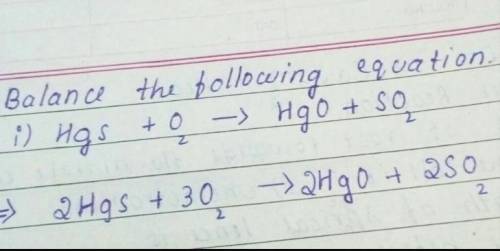 Balance the following equation.
i) Hgs + O₂ → HgO + SO₂
⇒ 2Hgs + 3O₂ → 2HgO + 2SO₂